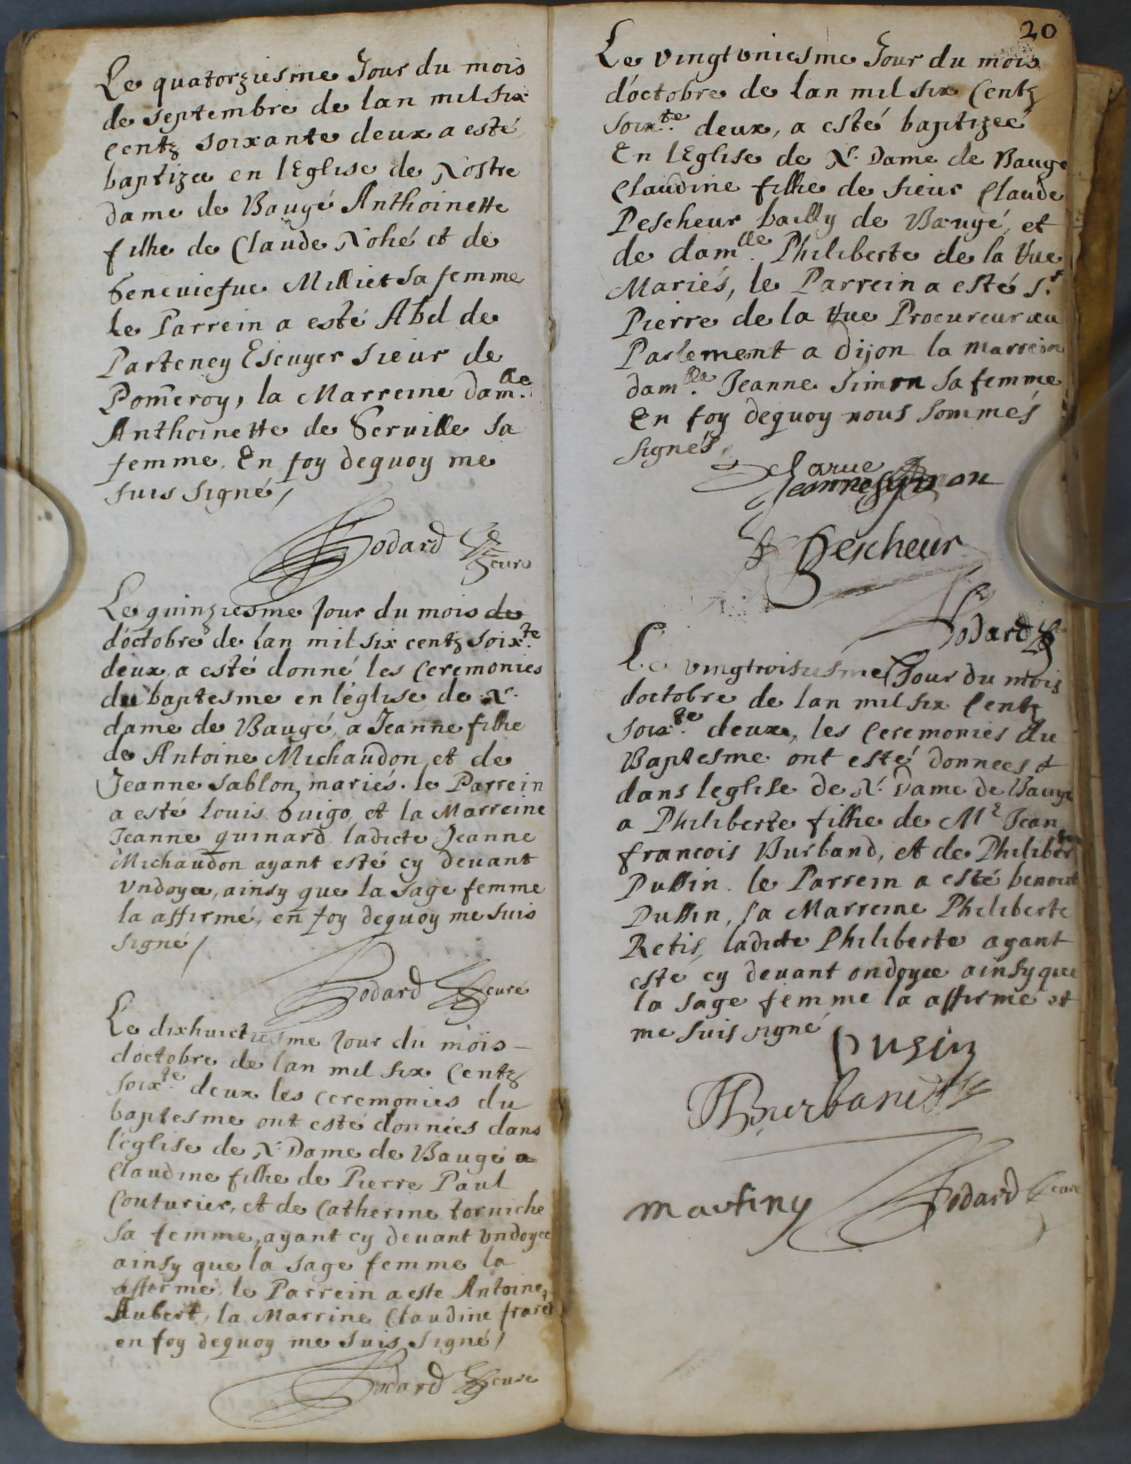 Le quatorziesme Jour du mois
de septembre de lan mil six
centz soixante deux a esté
baptizee en lEglise de Nostre
dame de Baugé Anthoinette
filhe de Claude Nohé et de
Geneuiefue Milliet sa femme
le Parrein a esté Abel de
Parteney Escuyer sieur de
Pom̃eroy, la Marreine dam.lle
Anthoinette de Seruille sa
femme. En foy dequoy me
suis signé /
Godard
curé
Le quinziesme Jour du mois de
doctobre de lan mil six centz soix.te
deux a esté donné les ceremonies
du baptesme en léglise de N.
dame de Baugé a Jeanne filhe
de Antoine Michaudon et de
Jeanne sablon mariés. le Parrein
a esté Louis Guigo, et la Marreine
Jeanne guinard ladicte Jeanne
Michaudon ayant esté cy deuant
Vndoyee, ainsy que la sage femme
la affirmé, en foy dequoy me suis
signé /
Godard curé
Le dixhuictiesme Jour du mois
doctobre de lan mil six centz
soix.te deux les ceremonies du
baptesme ont esté données dans
léglise de N. Dame de Baugé a
Claudine filhe de Pierre Paul
Couturier, et de Catherine torniche
sa femme, ayant cy deuant Vndoyee
ainsy que la sage femme la
affirmé. le Parrein a esté Antoine
Aubert, la Marrine Claudine
en foy dequoy me suis signé /
Godard curé
20
Le vingtvniesme Jour du mois
d'octobre de lan mil six Centz
soix.te deux, a esté baptizeé
En lEglise de N. Dame de Bauge
Claudine filhe de sieur Claude
Pescheur bailly de Baugé, et
de dam.lle Philiberte de la Rue
Mariés, le Parrein a esté s.r
Pierre de la Rue Procureur au
Parlement a dijon la marreine
dam.lle Jeanne Simon sa femme
En foy dequoy nous sommés
signés.
Delarue
Jeanne Simon
Pescheur
Godard
Le vingtroisiesme Jour du mois
doctobre de lan mil six Centz
soix.te deux, les ceremonies du
Baptesme ont esté données
dans leglise de N. Dame de Bauge
a Philiberte filhe de M.r Jean
francois Burband, et de Philiberte
Pussin. le Parrein a esté benoist
Pussin, la Marreine Philiberte
Retis, ladicte Philiberte ayant
esté cy deuant ondoyee ainsy que
la sage femme la affirmé et
me suis signé
Pusin
Burband
martiny Godard curé